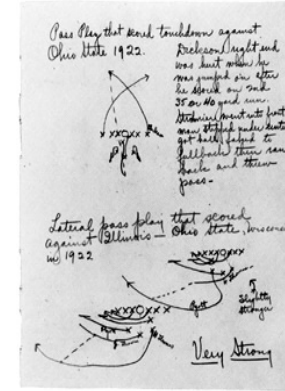 Pass Play that scored touchdown against
Ohio State 1922.
Dickson right end
was hurt when he
was jumped on after
he scored on 2nd
35 or 40 yard run.
went into front
man stepped under center
got ball, faked to
fullback then ran
back and threw
pass.
Lateral pass play that scored
against Illinois – Ohio State,
in 1922
Slightly
stronger
Very Strong